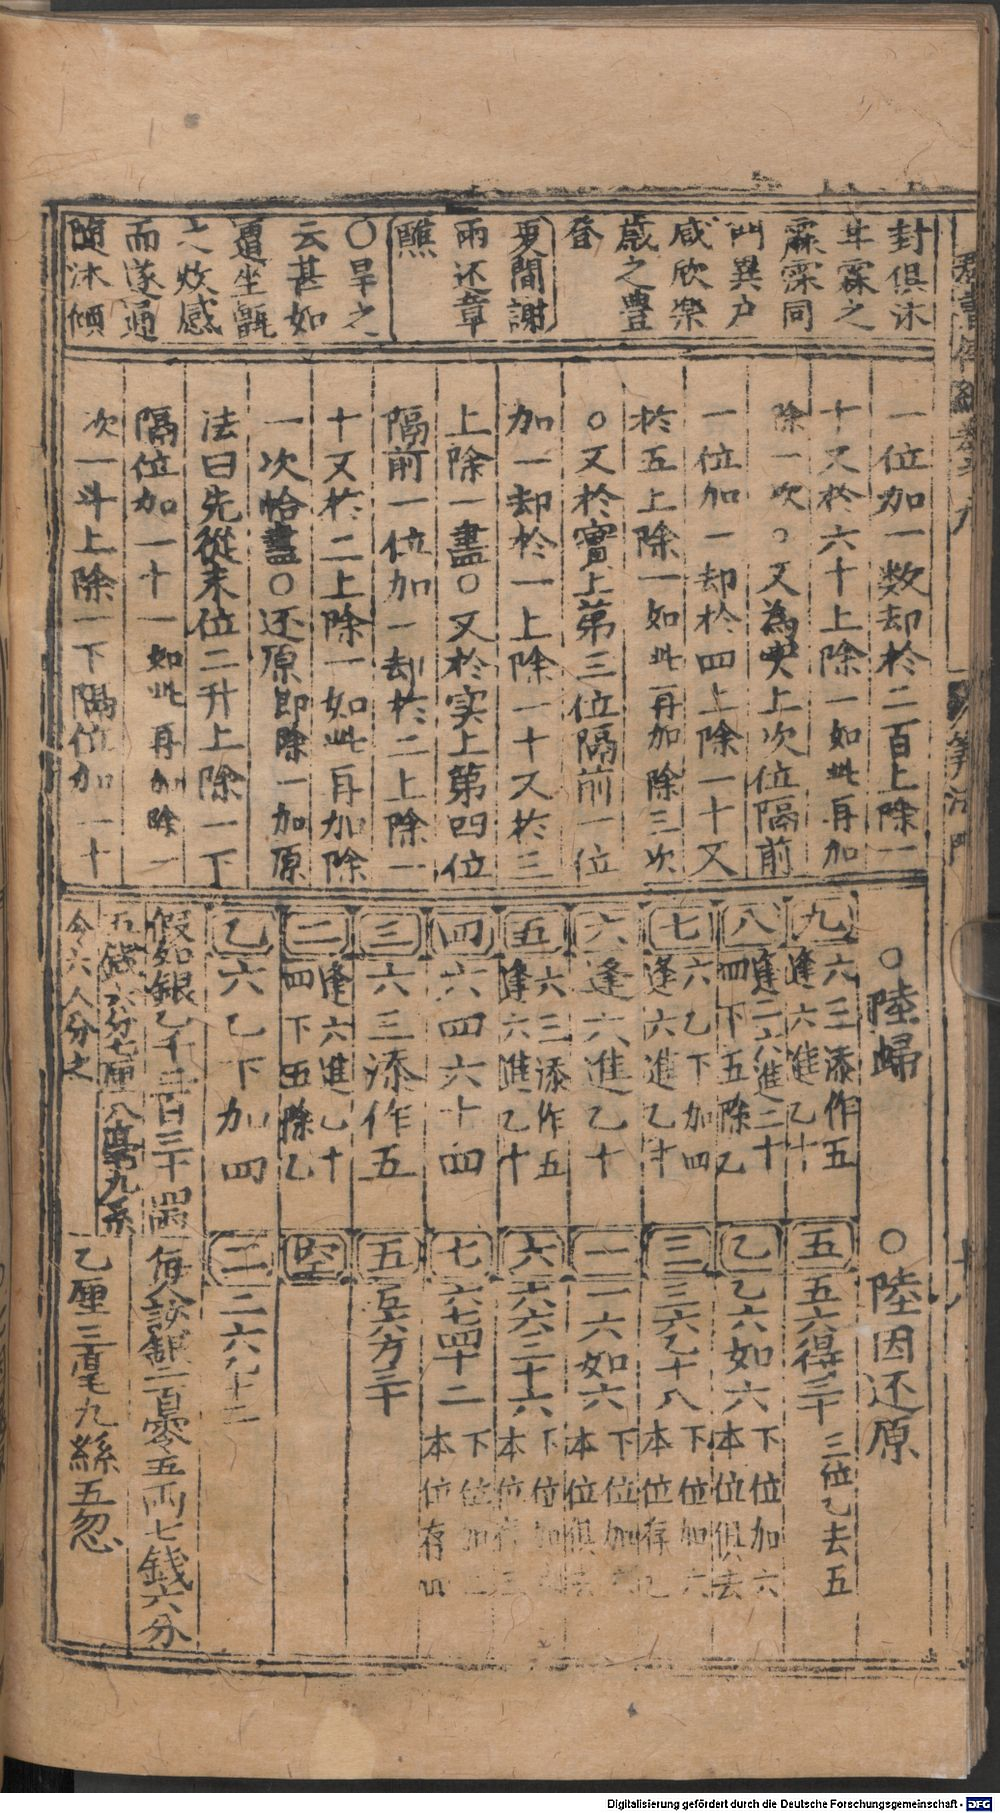 封俱沐
年霖之
霖霂同
異戶
咸欣樂
歲之豐
登
夏間謝
雨还章
醮
〇旱之
云甚如
坐甑
之炊感
而遂通
隨沐傾
一位加一数却於二百上除一
十又於六十上除一如此再加
除一次〇又為實上次位隔前
一位加一却於四上除一十又
於五上除一如此再加除三次
〇又於實上第三位隔前一位
加一却於一上除一十又於三
上除一盡〇又於实上第四位
隔前一位加一却於二上除一
十又於二上除一如此再加除
一次恰盡〇还原即除一加原
法曰先從末位二升上除一下
隔位加一十一如此再加除一
次一斗上除一下隔位加一十
〇陸歸
九 六三添作五 逢六進乙十
八 逢二六進二十 四下五除乙
七 六乙下加四 逢六進乙十
六 逢六進乙十
五 六三添作五 逢六進乙十
四 六四六十四
三 六三添作五
二 逢六進乙十 四下五除乙
乙 六乙下加四
假如銀乙千二百三十四兩
五錢六分七厘八毫九系
令六人分之
〇陸因还原
五 五六得三十 三位乙去五
乙 乙六如六 下位加六 本位俱去
三 三六乙十八 下位加六 本位存乙
一 一六如六 下位加六 本位俱去
六 六六三十六 下位加 本位存三
七 六七四十二 下位加二 本位存四
五 五六方三十
空
二 二六乙十二
每人該銀二百零五两七錢六分
乙厘三毫九絲五忽
筭法門
十八
Digitalisierung gefördert durch die Deutsche Forschungsgemeinschaft - DFG